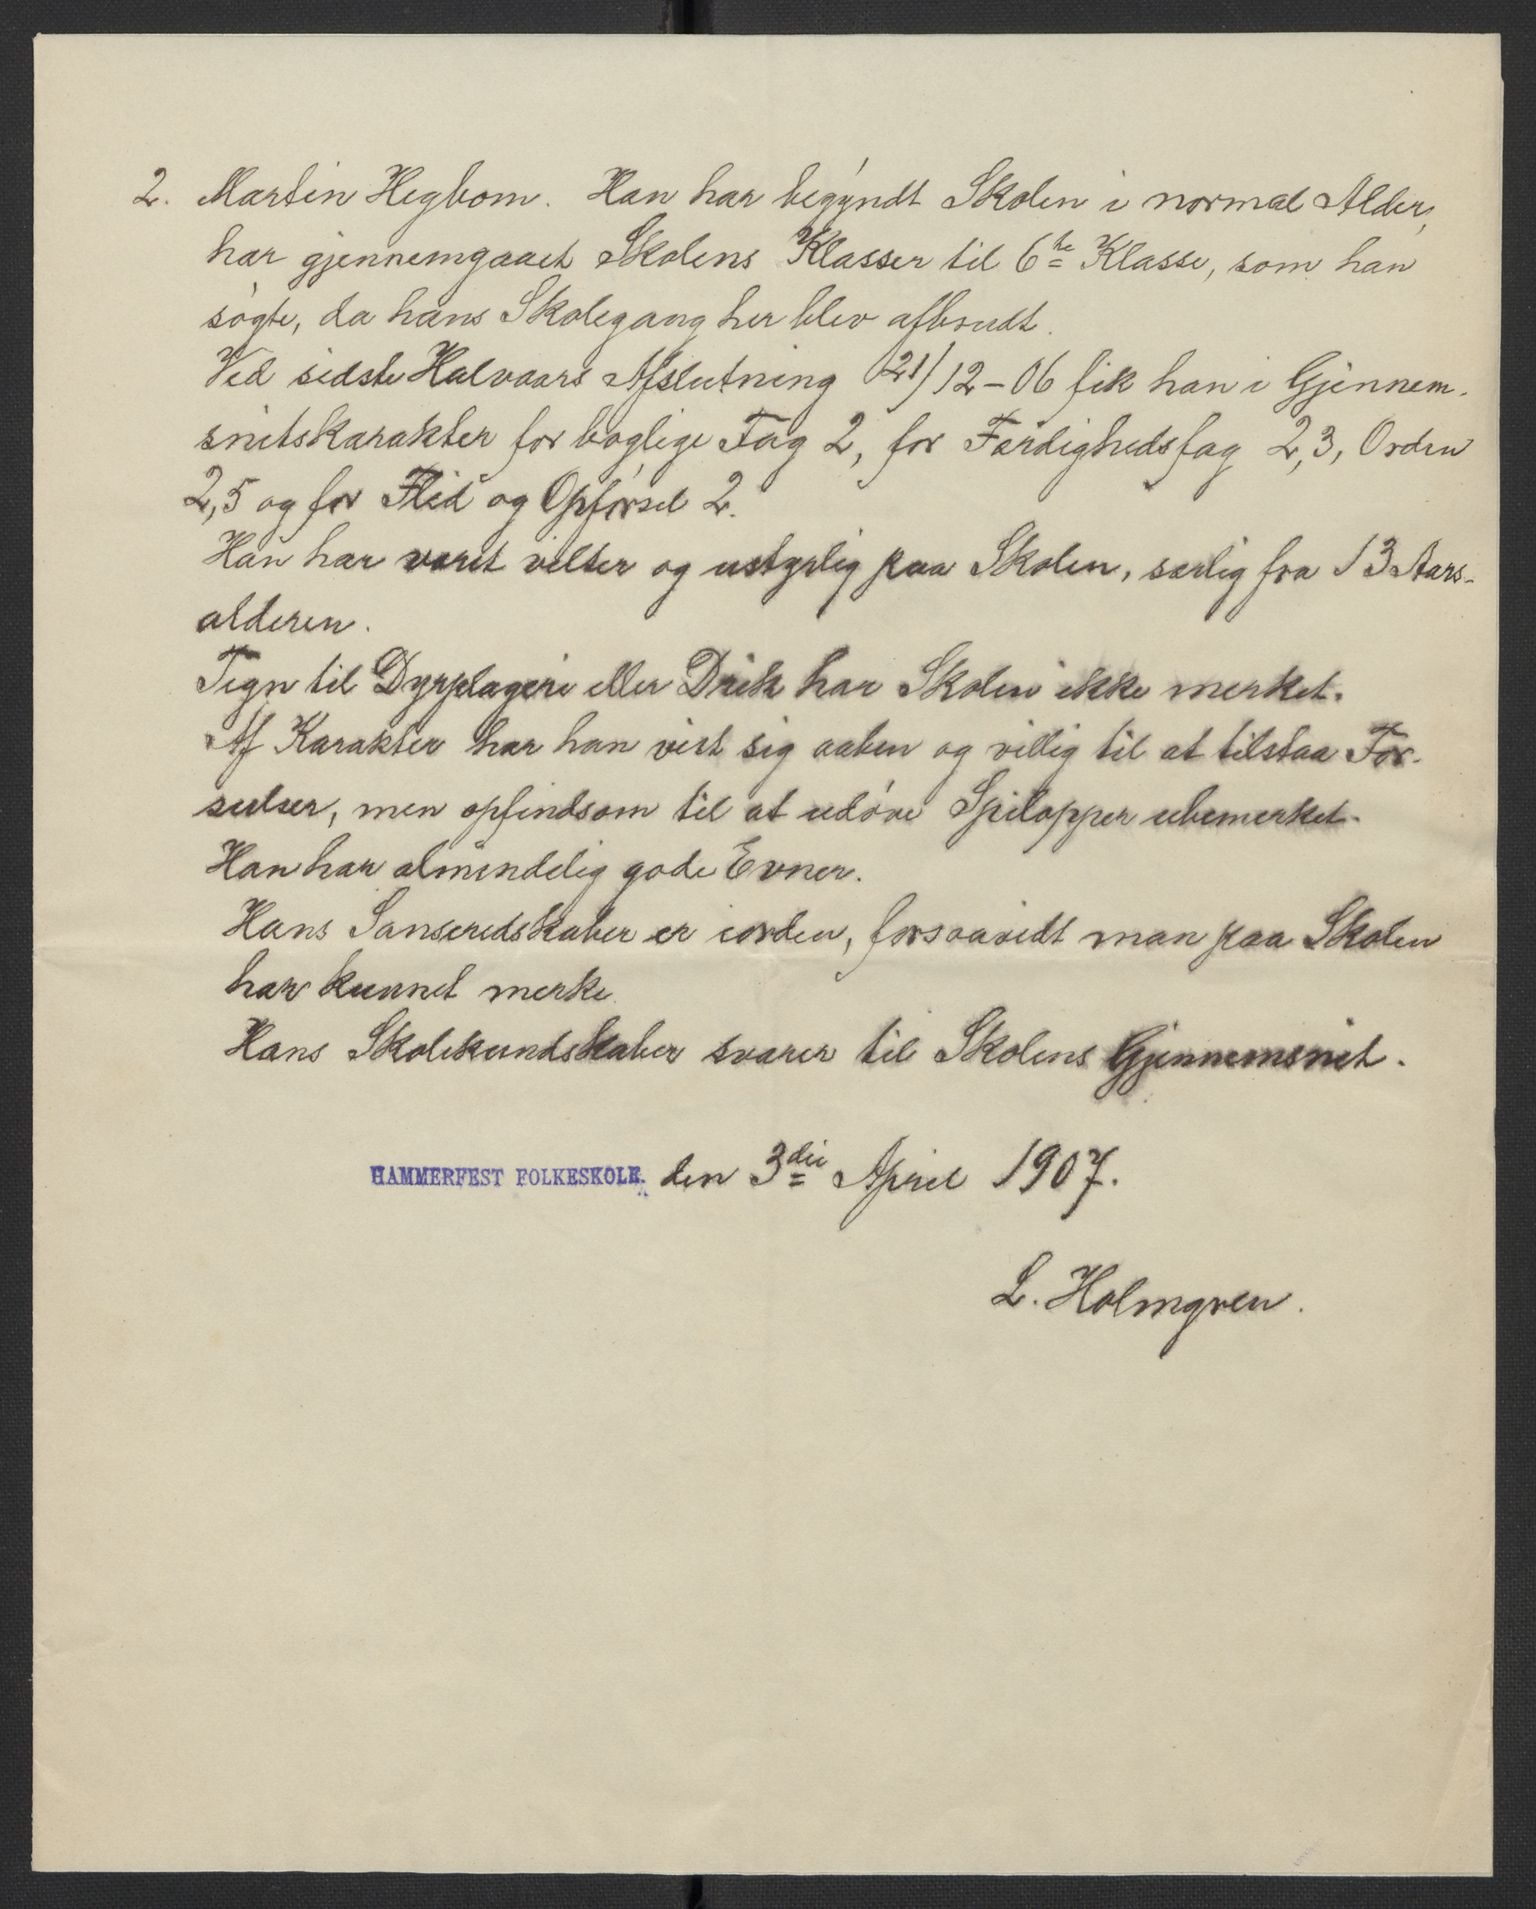 2. Martin Hegbom. Han har begyndt Skolen i normal Alder,
har gjennemgaaet Skolens Klasser til 6te Klasse, som han
søgte, da hans Skolegang her blev afbrudt.
Ved sidste Halvaars Afslutning 21/12-06 fik han i Gjennem-
snitskarakter for boglige Fag 2, for Færdighedsfag 2,3, Orden
2,5 og for Flid og Opførsel 2.
Han har været vilter og ustyrlig paa Skolen, særlig fra 13 Aars-
alderen.
Tegn til Dyrplageri eller Drik har Skolen ikke merket.
Af Karakter har han vist sig aaben og villig til at tilstaa For-
seelser, men opfindsom til at udøve Spilopper ubemerket.
Han har almindelig gode Evner.
Hans Sanseredskaber er iorden, forsaavidt man paa Skolen
har kunnet merke.
Hans Skolekundskaber svarer til Skolens Gjennemsnit.
HAMMERFEST FOLKESKOLE den 3die April 1907.
L. Holmgren.